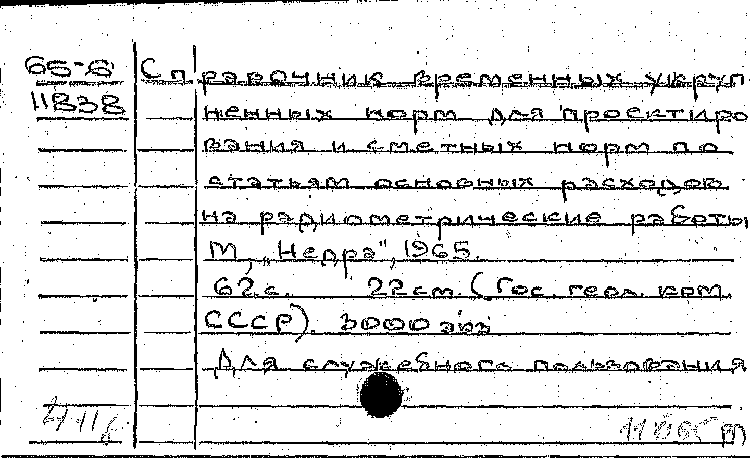 65-6 Справочник временных укруп
11838 ненных норм для проектиро
вания и сметных норм по
статьям основных расходов
на радиометрические работы
М, „Недра", 1965.
62 с. 22 см. (Гос. геол. ком.
СССР). 3000 экз
Для служебного пользования